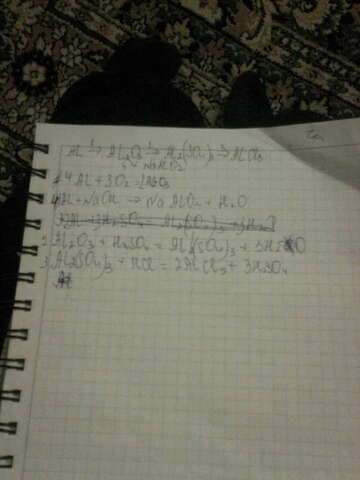 Al →¹ Al₂O₃ →² Al₂(SO₄)₃ →³ AlCl₃
NaAlO₂
4Al + 3O₂ = 2Al₂O₃
Al + NaOH → NaAlO₂ + H₂O
2 Al₂O₃ + H₂SO₄ = Al₂(SO₄)₃ + 3H₂O
3 Al₂(SO₄)₃ + HCl = 2AlCl₃ + 3H₂SO₄